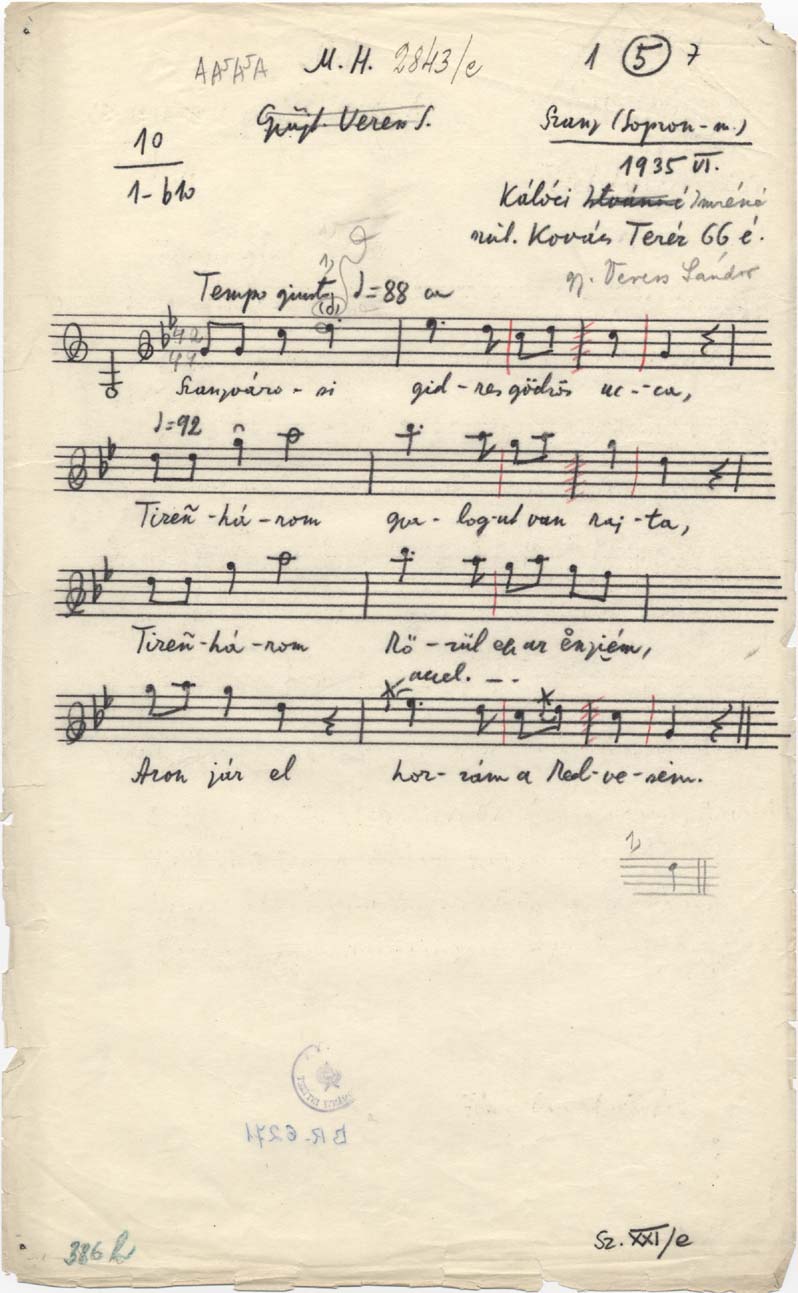 AA⁵A⁵A M. H. 2843/e 1 5 7
Gyűjt. Veress S. Szany (Sopron-m.)
10
1-b10
1935 VI.
Kálóci Istvánné Imréné
szül. Kovács Teréz 66 é.
gy. Veress Sándor
Tempo giusto ♩=88 ca
1)
Szanyváro - si gid - res gödrös uc - ca,
♩=92
Tizeñ - há - rom gya - log-ut van raj - ta,
Tizeñ - há - rom
accel. - -
Azon jár el hoz - zám a ked - ve - sëm.
1)
BR-6271
386 h
Sz. XXI/e